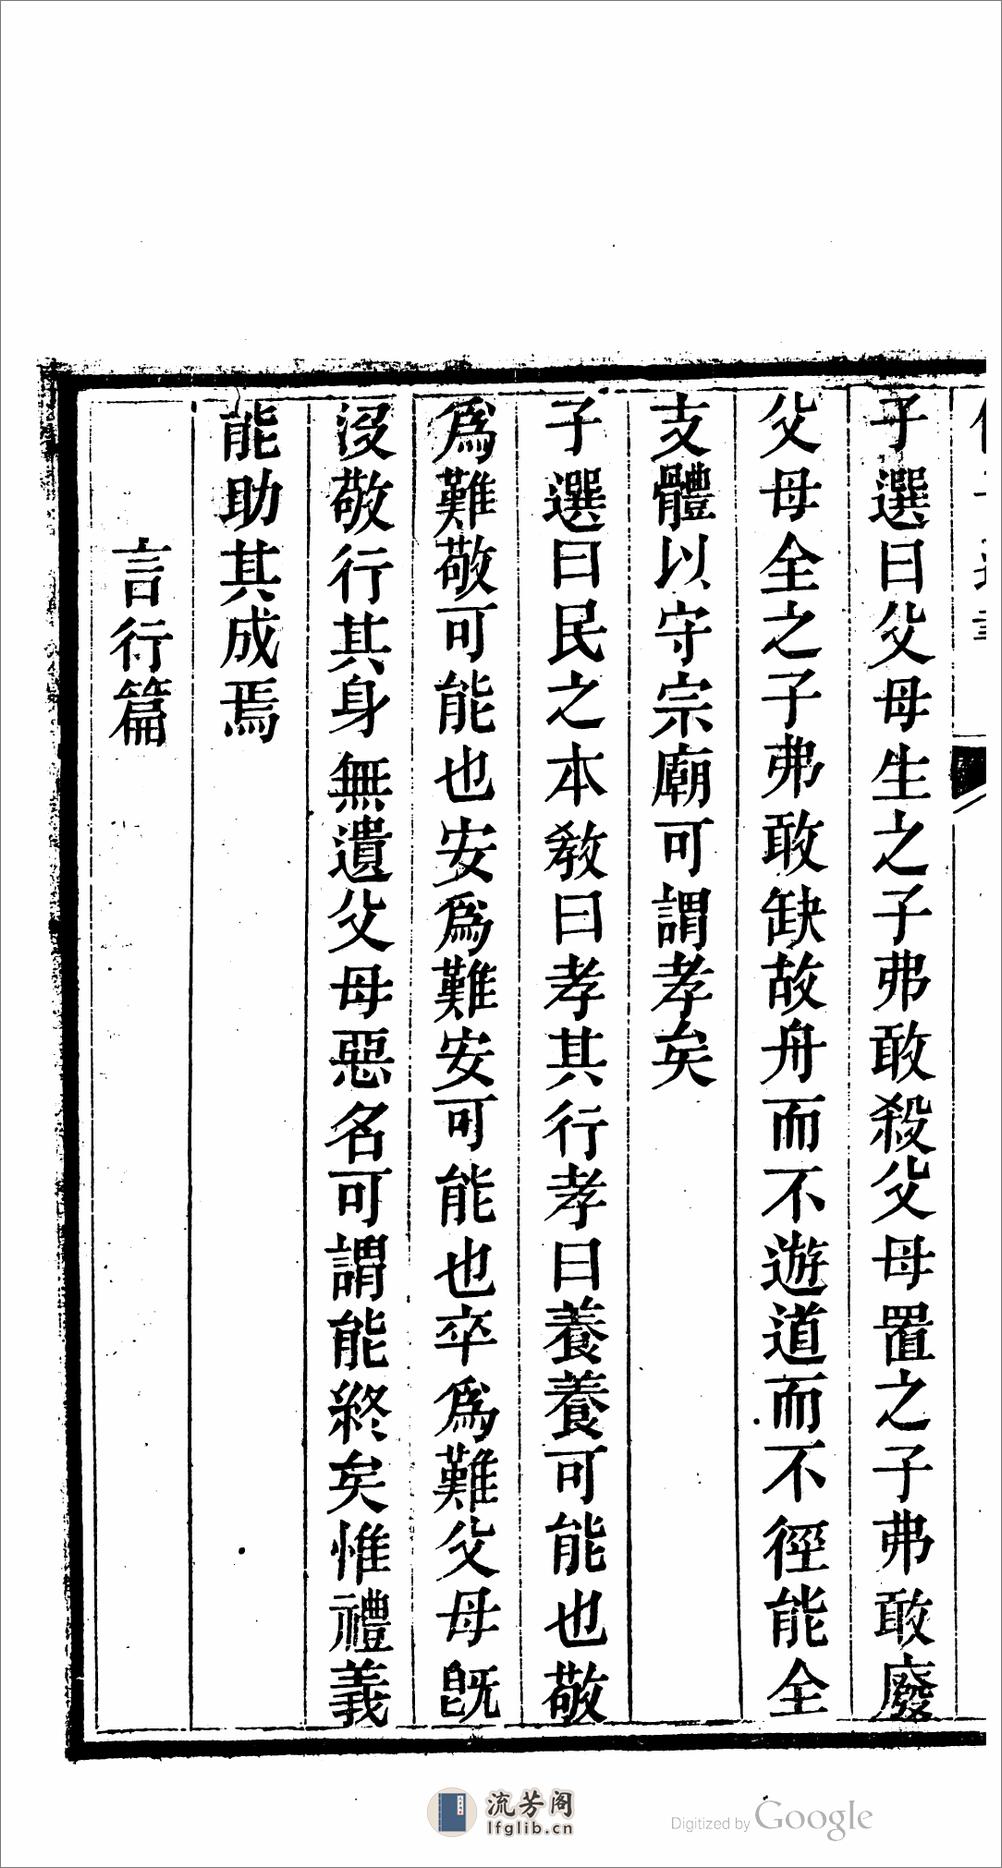 子選曰父母生之子弗敢殺父母置之子弗敢廢
父母全之子弗敢缺故舟而不遊道而不徑能全
支體以守宗廟可謂孝矣
子選曰民之本教曰孝其行孝曰養養可能也敬
爲難敬可能也安爲難安可能也卒爲難父母旣
沒敬行其身無遺父母惡名可謂能終矣惟禮義
能助其成焉
言行篇
流芳阁
lfglib.cn
Digitized by Google